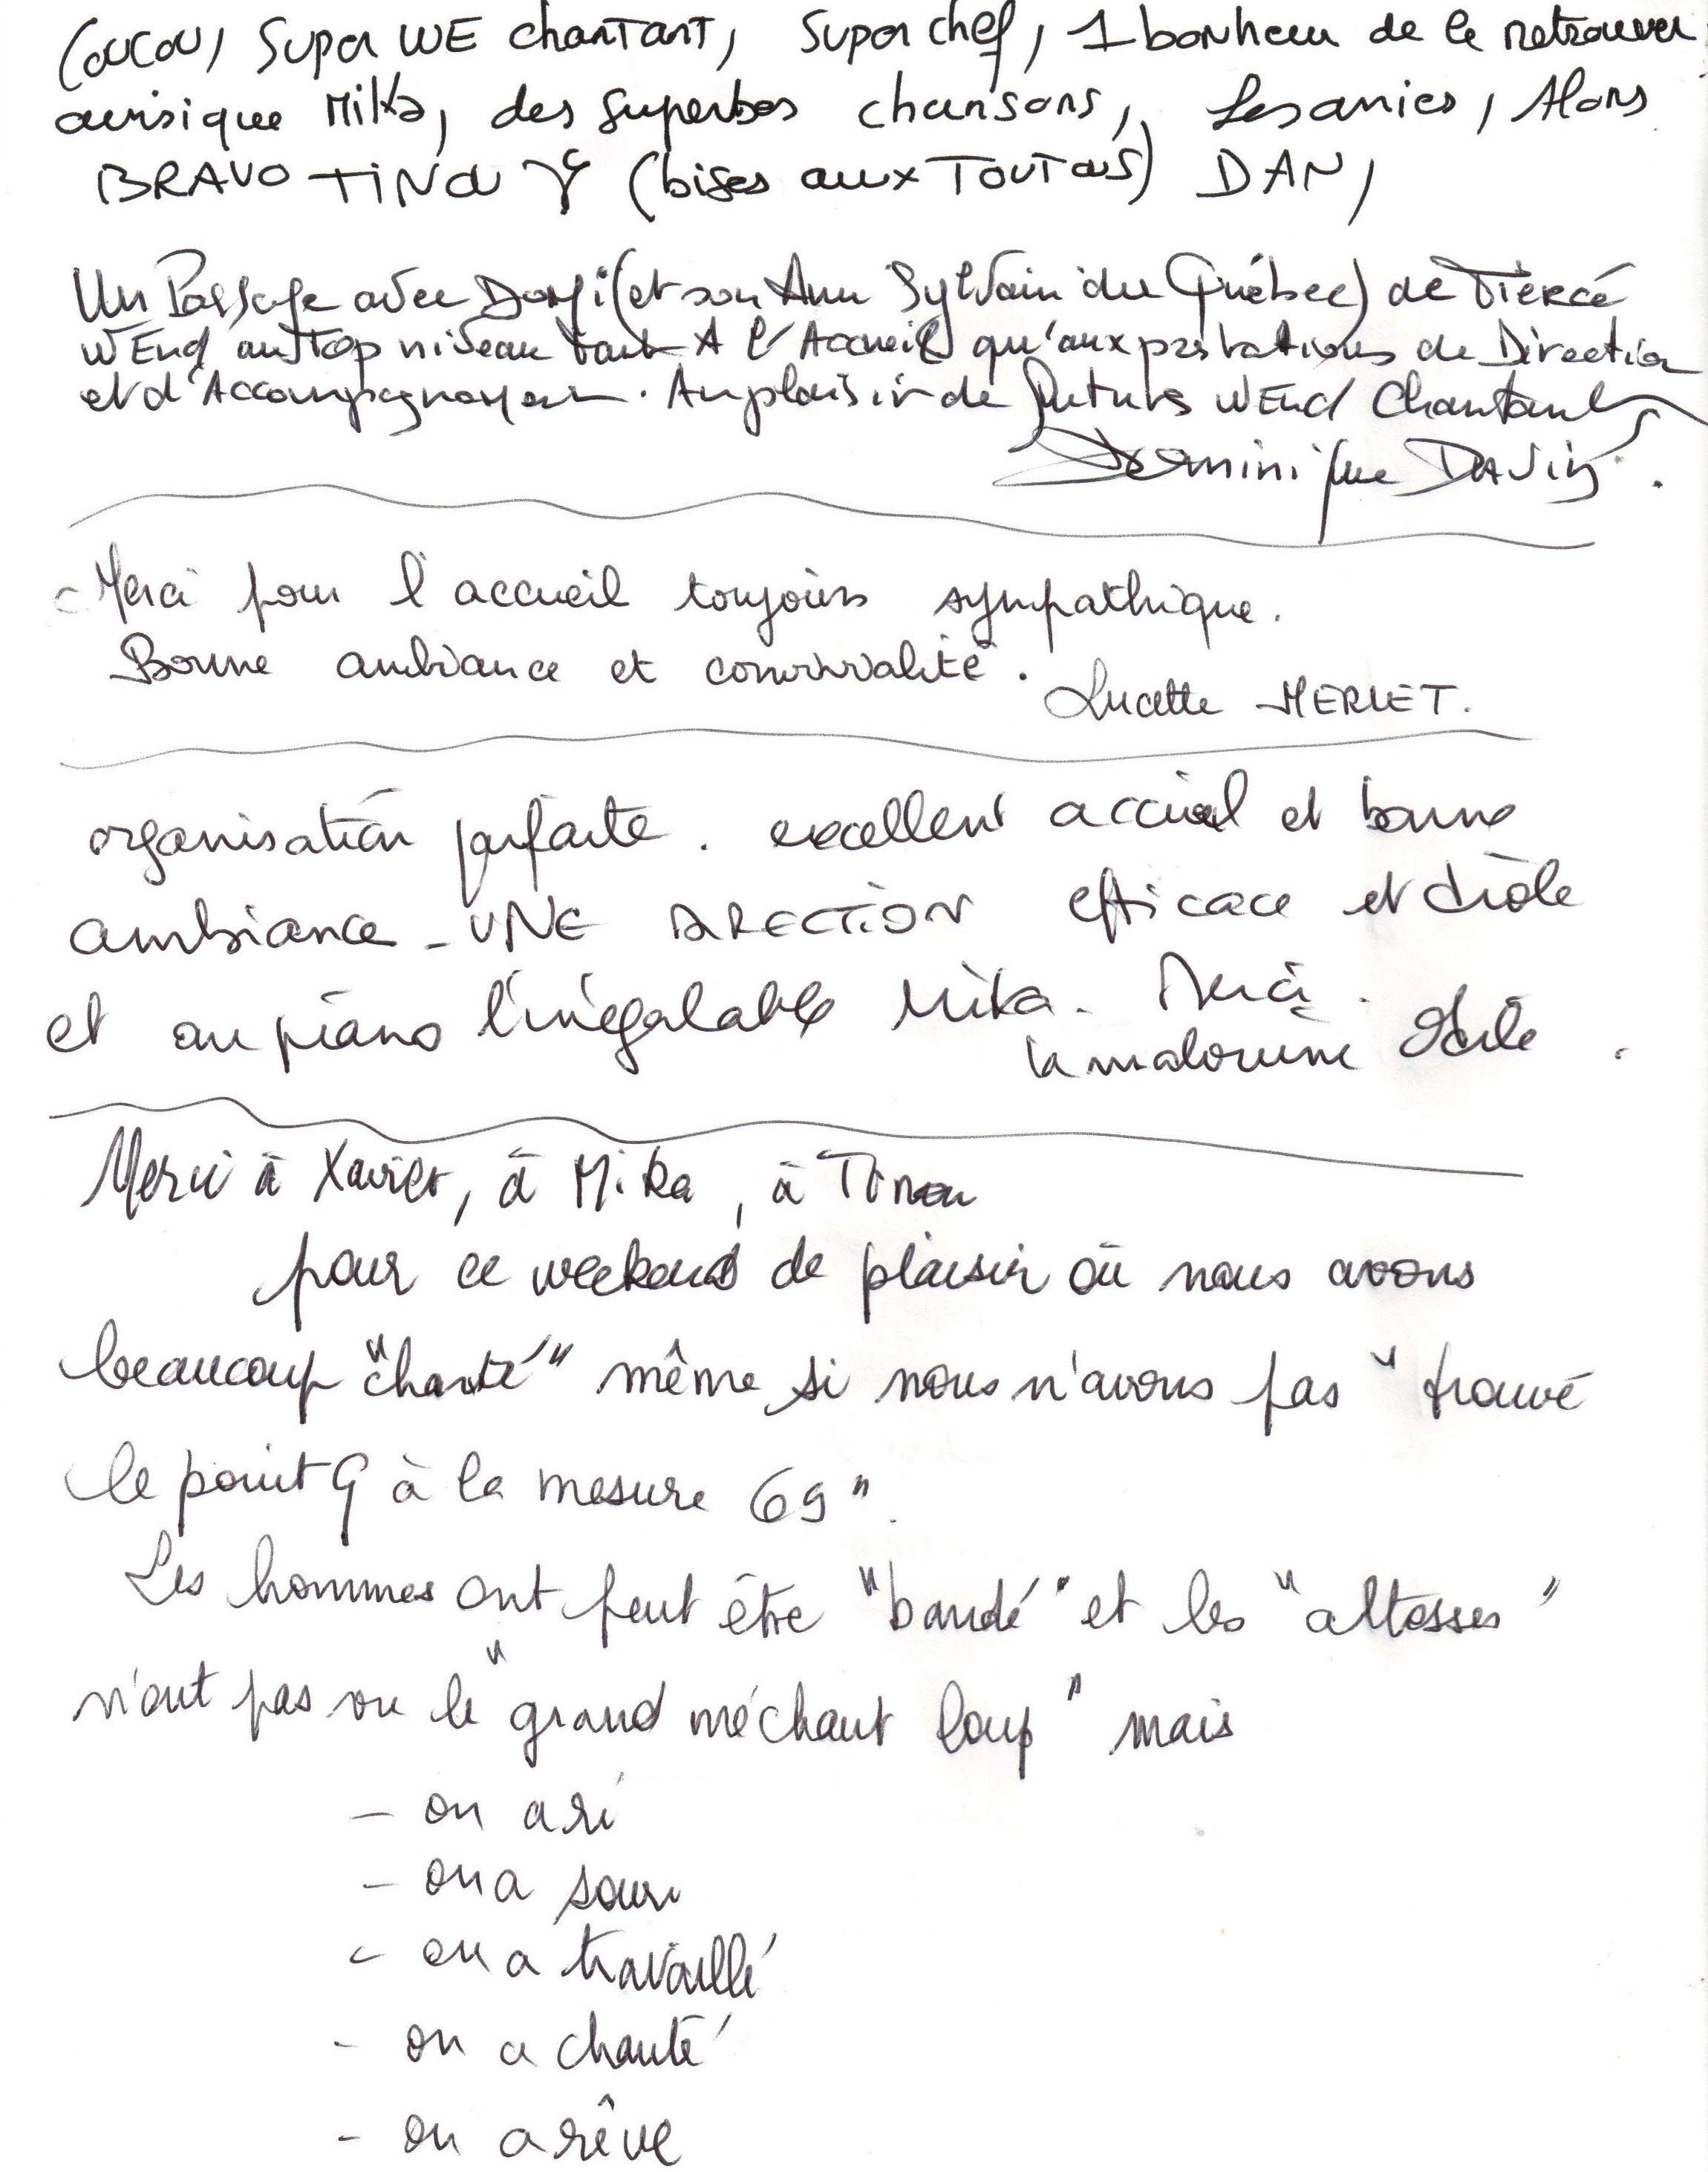 Coucou, Super WE chantant, Super chef, 1 bonheur de le retrouver
ainsi que Mika, des superbes chansons, Les amies, Alors
BRAVO TINOU (bises aux TOUTOUS) DANY
Un Passage avec (et son Ami Sylvain du Québec) de Tiercé
WEnd au top niveau tant A l'Accueil qu'aux prestations de Direction
et d'Accompagnement. Au plaisir de futurs WEnd Chantants
Dominique DAVID.
Merci pour l'accueil toujours sympathique.
Bonne ambiance et convivialité.
Lucette MERLET.
organisation parfaite. excellent accueil et bonne
ambiance - UNE DIRECTION efficace et drôle
et au piano l'inégalable Mika. Merci.
la malouine Odile.
Merci à Xavier, à Mika, à Tinou
pour ce weekend de plaisir où nous avons
beaucoup "chanté" même si nous n'avons pas "trouvé
le point G à la mesure 69".
Les hommes ont peut être "bandé" et les "altesses"
n'ont pas vu le "grand méchant loup" mais
- on a ri
- on a souri
- on a travaillé
- on a chanté
- on a rêvé